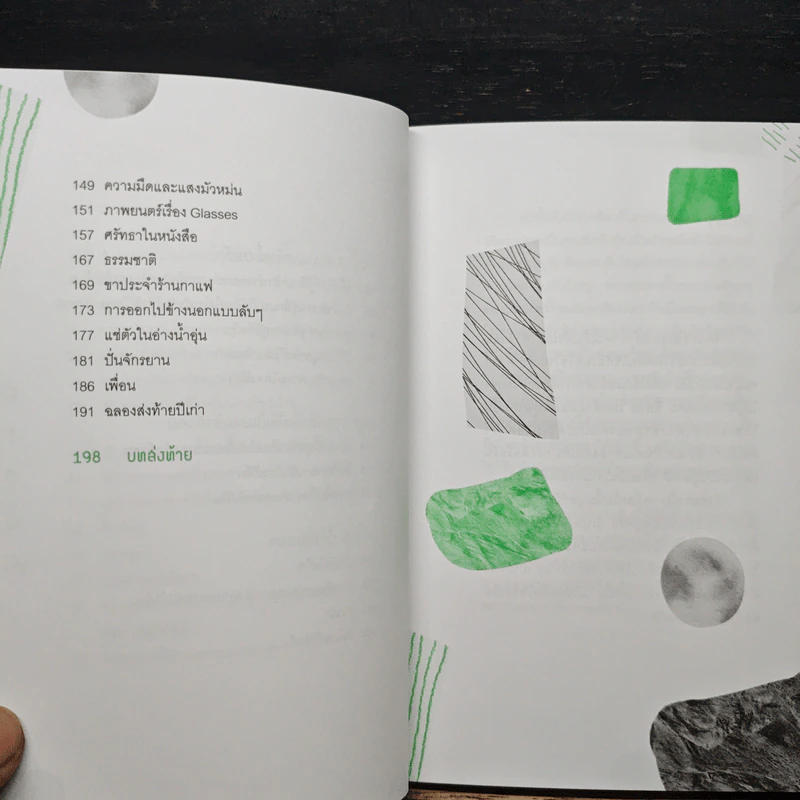 149 ความมืดและแสงมัวหม่น
151 ภาพยนตร์เรื่อง Glasses
157 ศรัทธาในหนังสือ
167 ธรรมชาติ
169 ขาประจำร้านกาแฟ
173 การออกไปข้างนอกแบบลับๆ
177 แช่ตัวในอ่างน้ำอุ่น
181 ปั่นจักรยาน
186 เพื่อน
191 ฉลองส่งท้ายปีเก่า
198 บทส่งท้าย